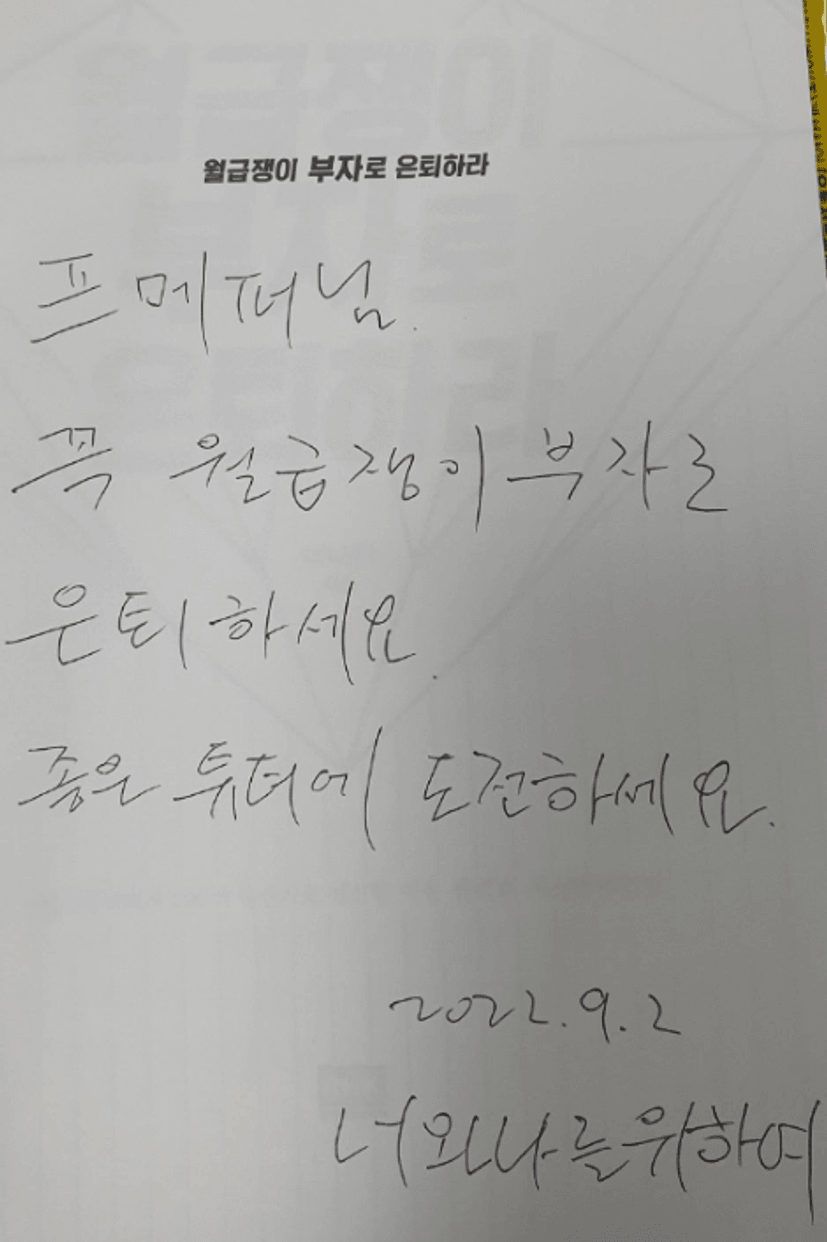 월급쟁이 부자로 은퇴하라
프메퍼님.
꼭 월급쟁이 부자로
은퇴하세요.
좋은 튜터에 도전하세요.
2022.9.2
너와나를위하여